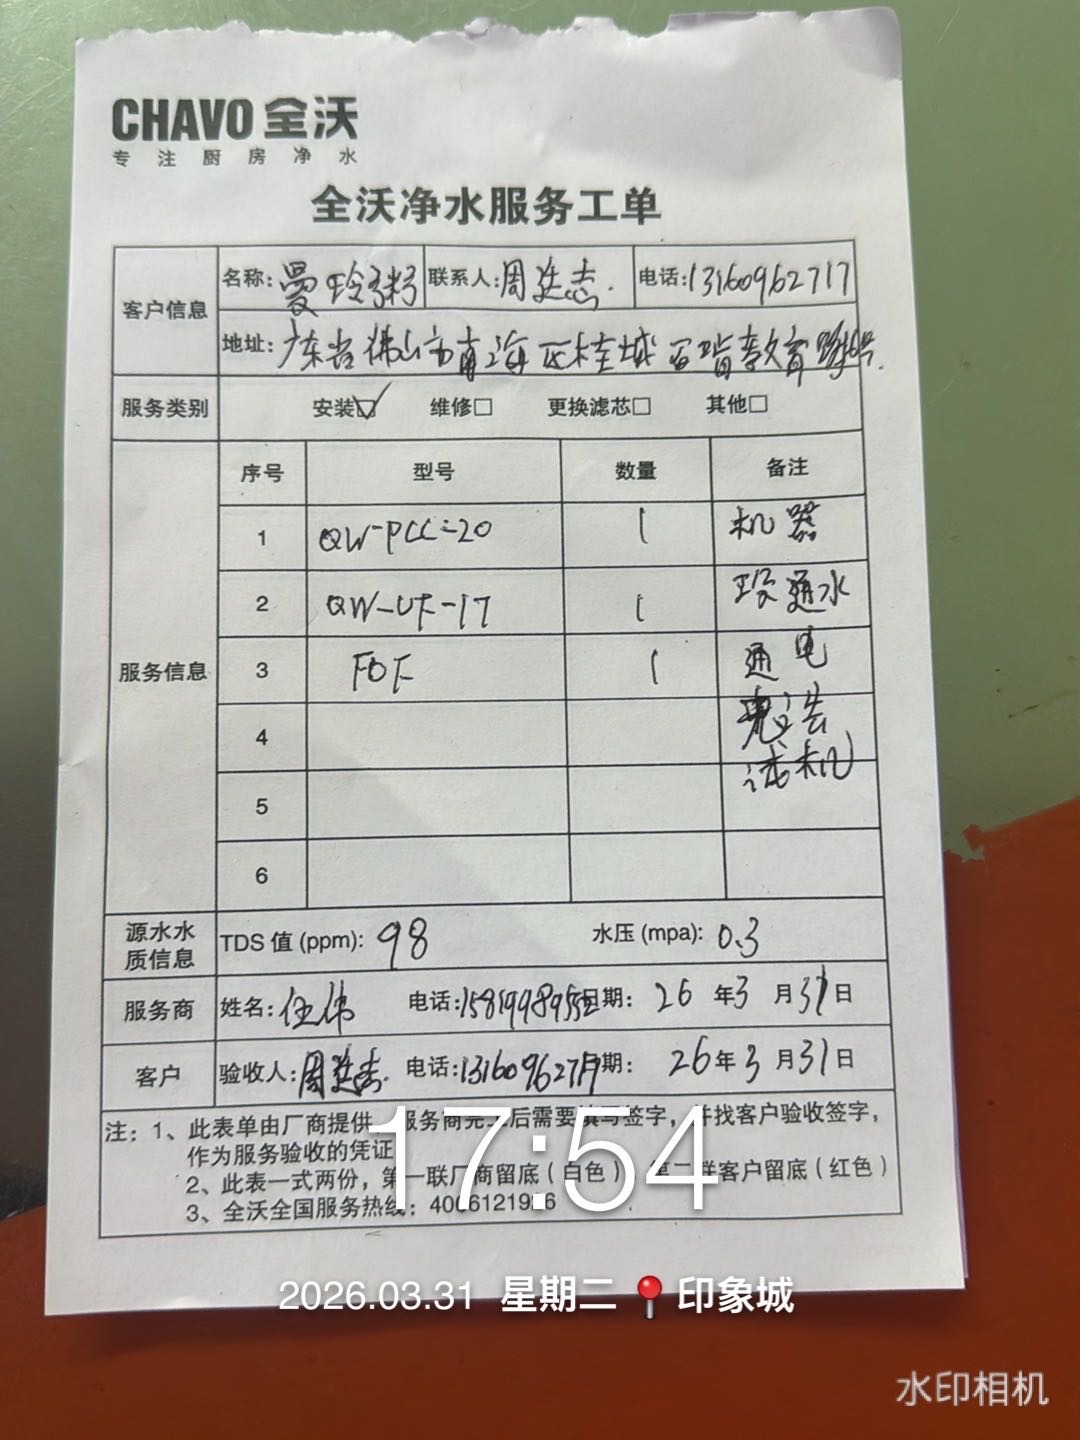 CHAVO 全沃
专注厨房净水
全沃净水服务工单
客户信息
名称: 曼玲粥 联系人: 周延志. 电话: 13160962717
地址: 广东省佛山市南海区桂城 教育路 号.
服务类别 安装☑ 维修□ 更换滤芯□ 其他□
服务信息
序号 型号 数量 备注
1 QW-PCC-20 1 机器
2 QW-UF-17 1 通水
3 FOF 1 通电
4
试机
5
6
源水水质信息 TDS 值 (ppm): 98 水压 (mpa): 0.3
服务商 姓名: 任伟 电话: 日期: 26 年 3 月 31 日
客户 验收人: 周延志. 电话: 1316096271 期: 26 年 3 月 31 日
注: 1、此表单由厂商提供 服务商完 后需要填写签字，并找客户验收签字，
作为服务验收的凭证
2、此表一式两份，第一联厂商留底（白色） 第二联客户留底（红色）
3、全沃全国服务热线: 4006121926
17:54
2026.03.31 星期二 印象城
水印相机